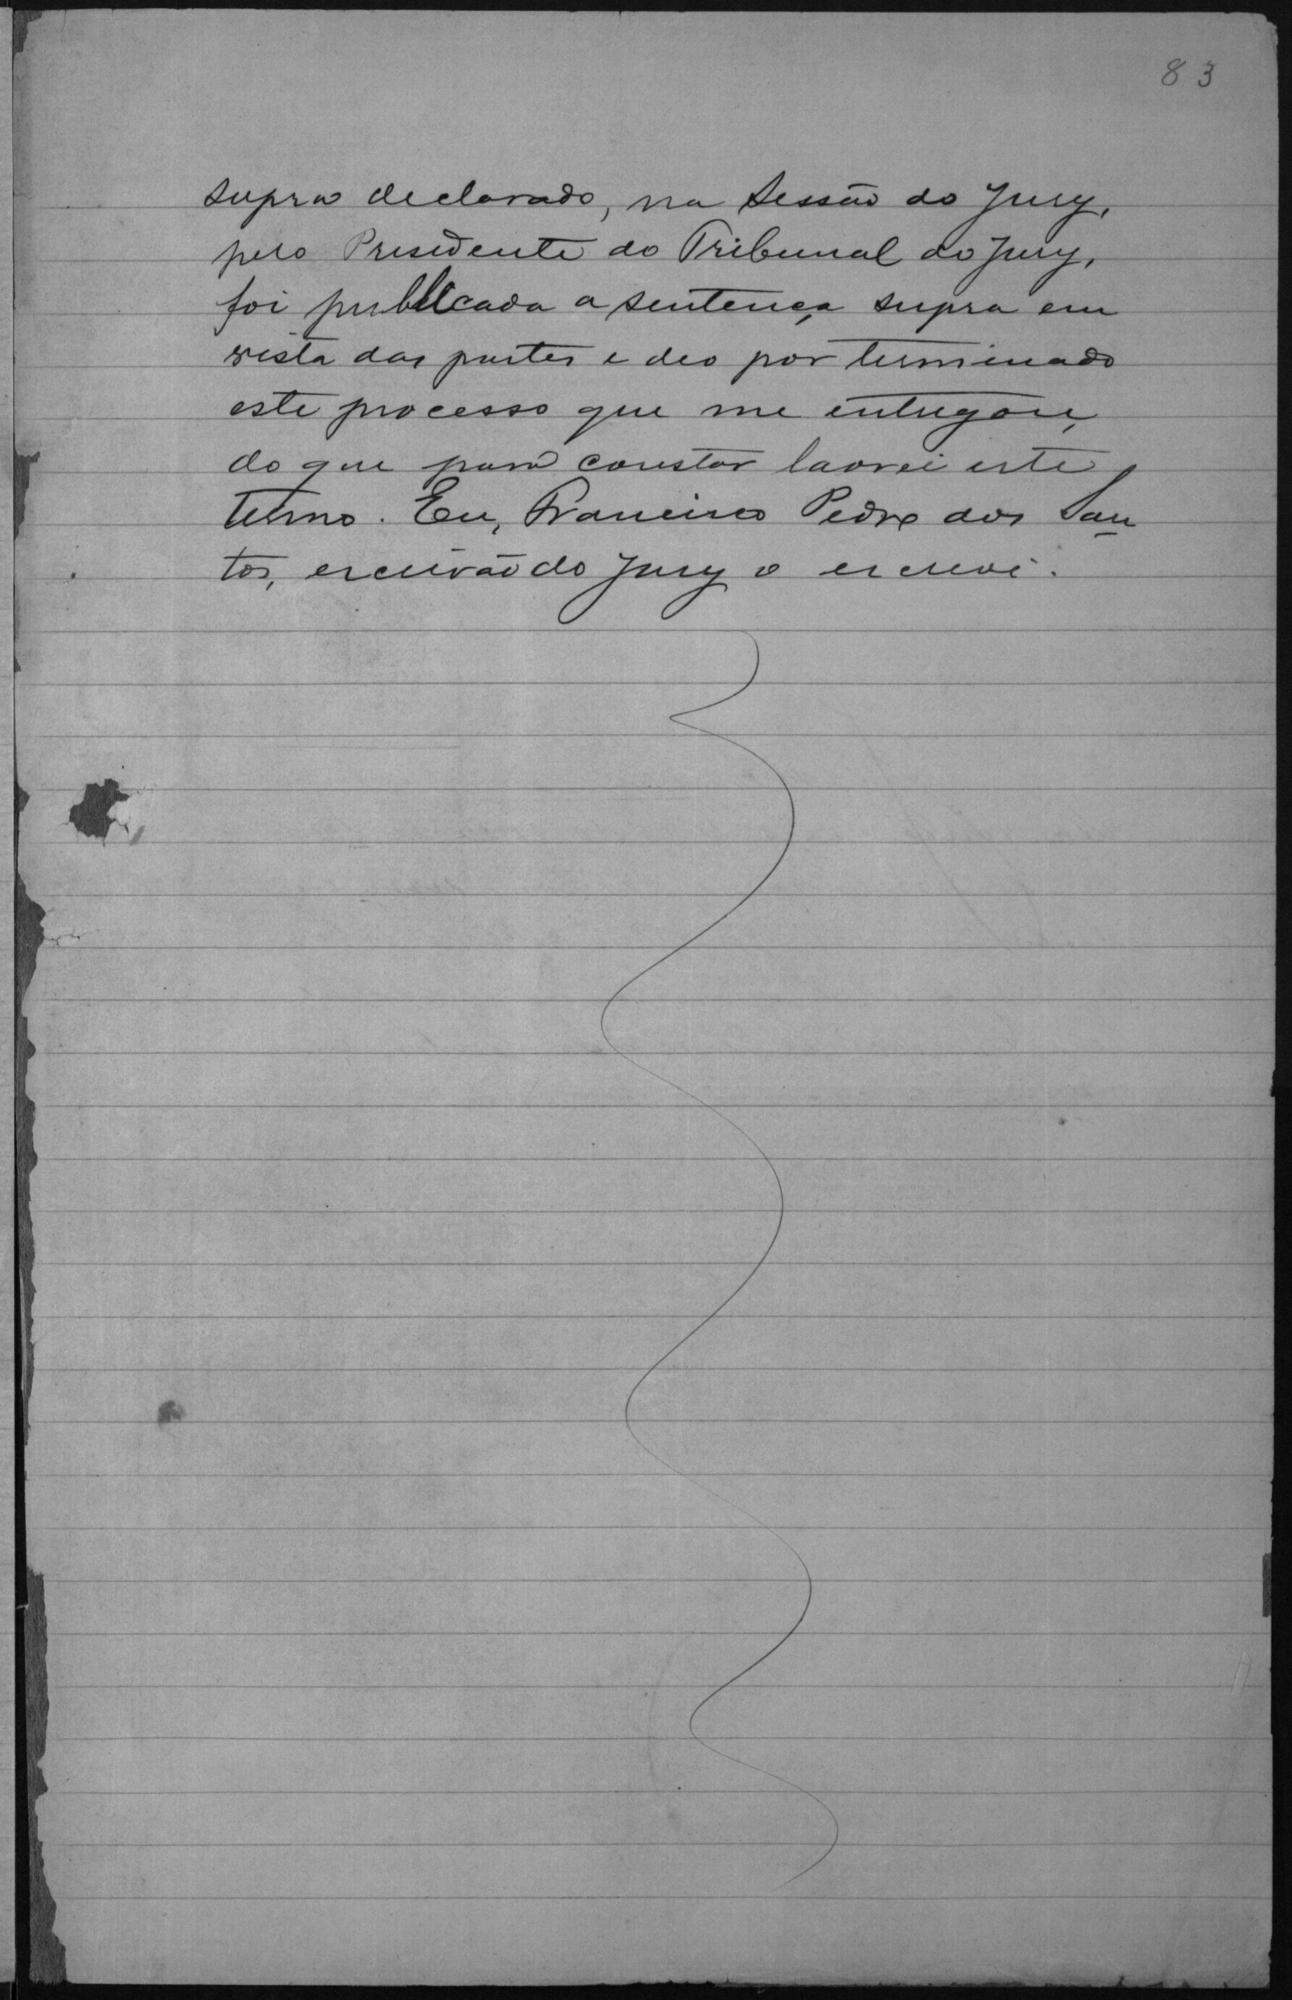 83
supra declarado, na Sessão do Jury,
pelo Presidente do Tribunal do Jury,
foi publicada a sentença supra em
vista das partes e deo por terminado
este processo que me entregou,
do que para constar lavrei este
termo. Eu, Francisco Pedro dos San
tos, escrivão do Jury o escrevi.